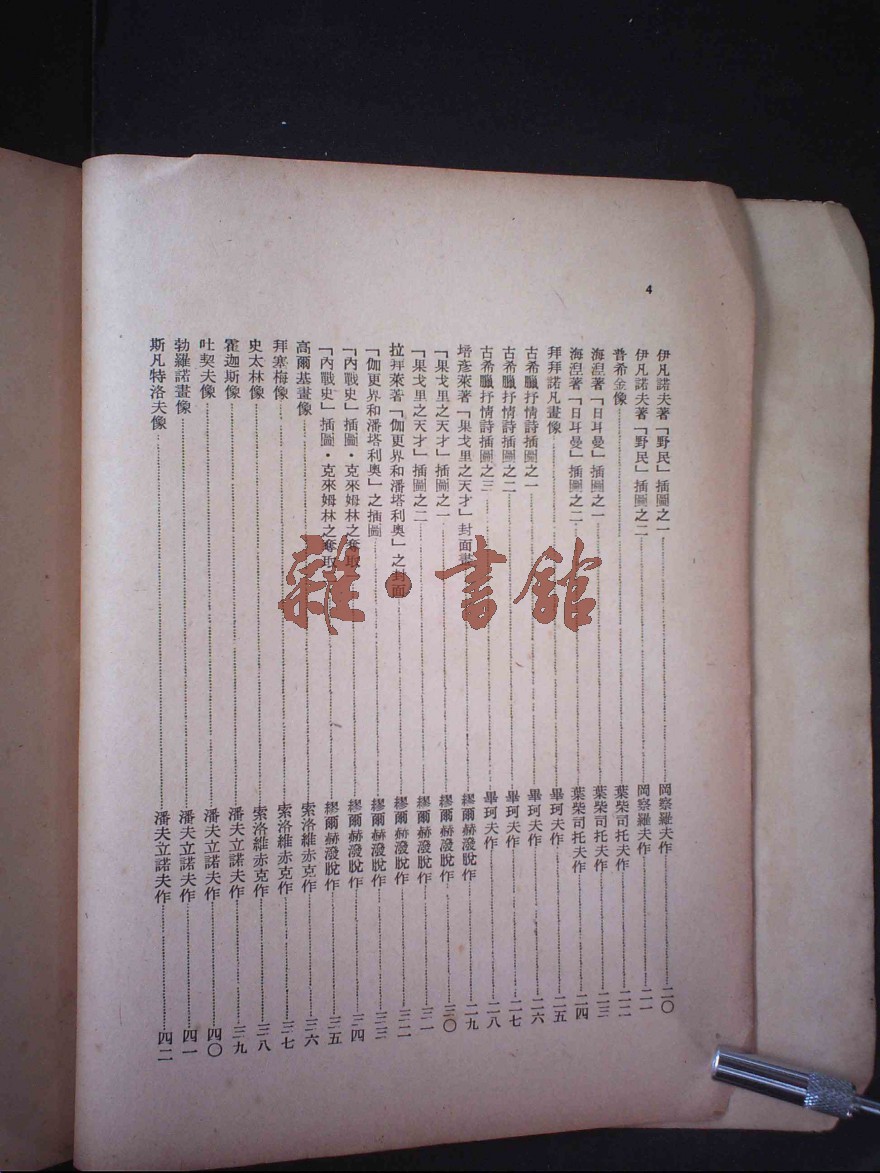 4
伊凡諾夫著「野民」插圖之一……岡察羅夫作……二〇
伊凡諾夫著「野民」插圖之二……岡察羅夫作……二一
普希金像……葉柴司托夫作……二二
海涅著「日耳曼」插圖之一……葉柴司托夫作……二三
海涅著「日耳曼」插圖之二……葉柴司托夫作……二四
拜拜諾凡畫像……畢珂夫作……二五
古希臘抒情詩插圖之一……畢珂夫作……二六
古希臘抒情詩插圖之二……畢珂夫作……二七
古希臘抒情詩插圖之三……畢珂夫作……二八
培彥萊著「果戈里之天才」封面畫……繆爾赫潑脫作……二九
「果戈里之天才」插圖之一……繆爾赫潑脫作……三〇
「果戈里之天才」插圖之二……繆爾赫潑脫作……三一
拉拜萊著「伽更界和潘塔利奧」之封面……繆爾赫潑脫作……三二
「伽更界和潘塔利奧」之插圖……繆爾赫潑脫作……三三
「內戰史」插圖・克來姆林之奪取……繆爾赫潑脫作……三四
「內戰史」插圖・克來姆林之奪取……繆爾赫潑脫作……三五
高爾基畫像……索洛維赤克作……三六
拜塞梅像……索洛維赤克作……三七
史太林像……索洛維赤克作……三八
霍迦斯像……潘夫立諾夫作……三九
吐契夫像……潘夫立諾夫作……四〇
勃羅諾畫像……潘夫立諾夫作……四一
斯凡特洛夫像……潘夫立諾夫作……四二
雜・書館